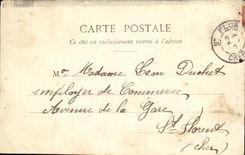 CARTE POSTALE
Ce côté est exclusivement réservé à l'adresse
ST FLOR
CHER
Mme Madame Leon Duchet
employer de Commerce
Avenue de la Gare
St Florent
(cher)